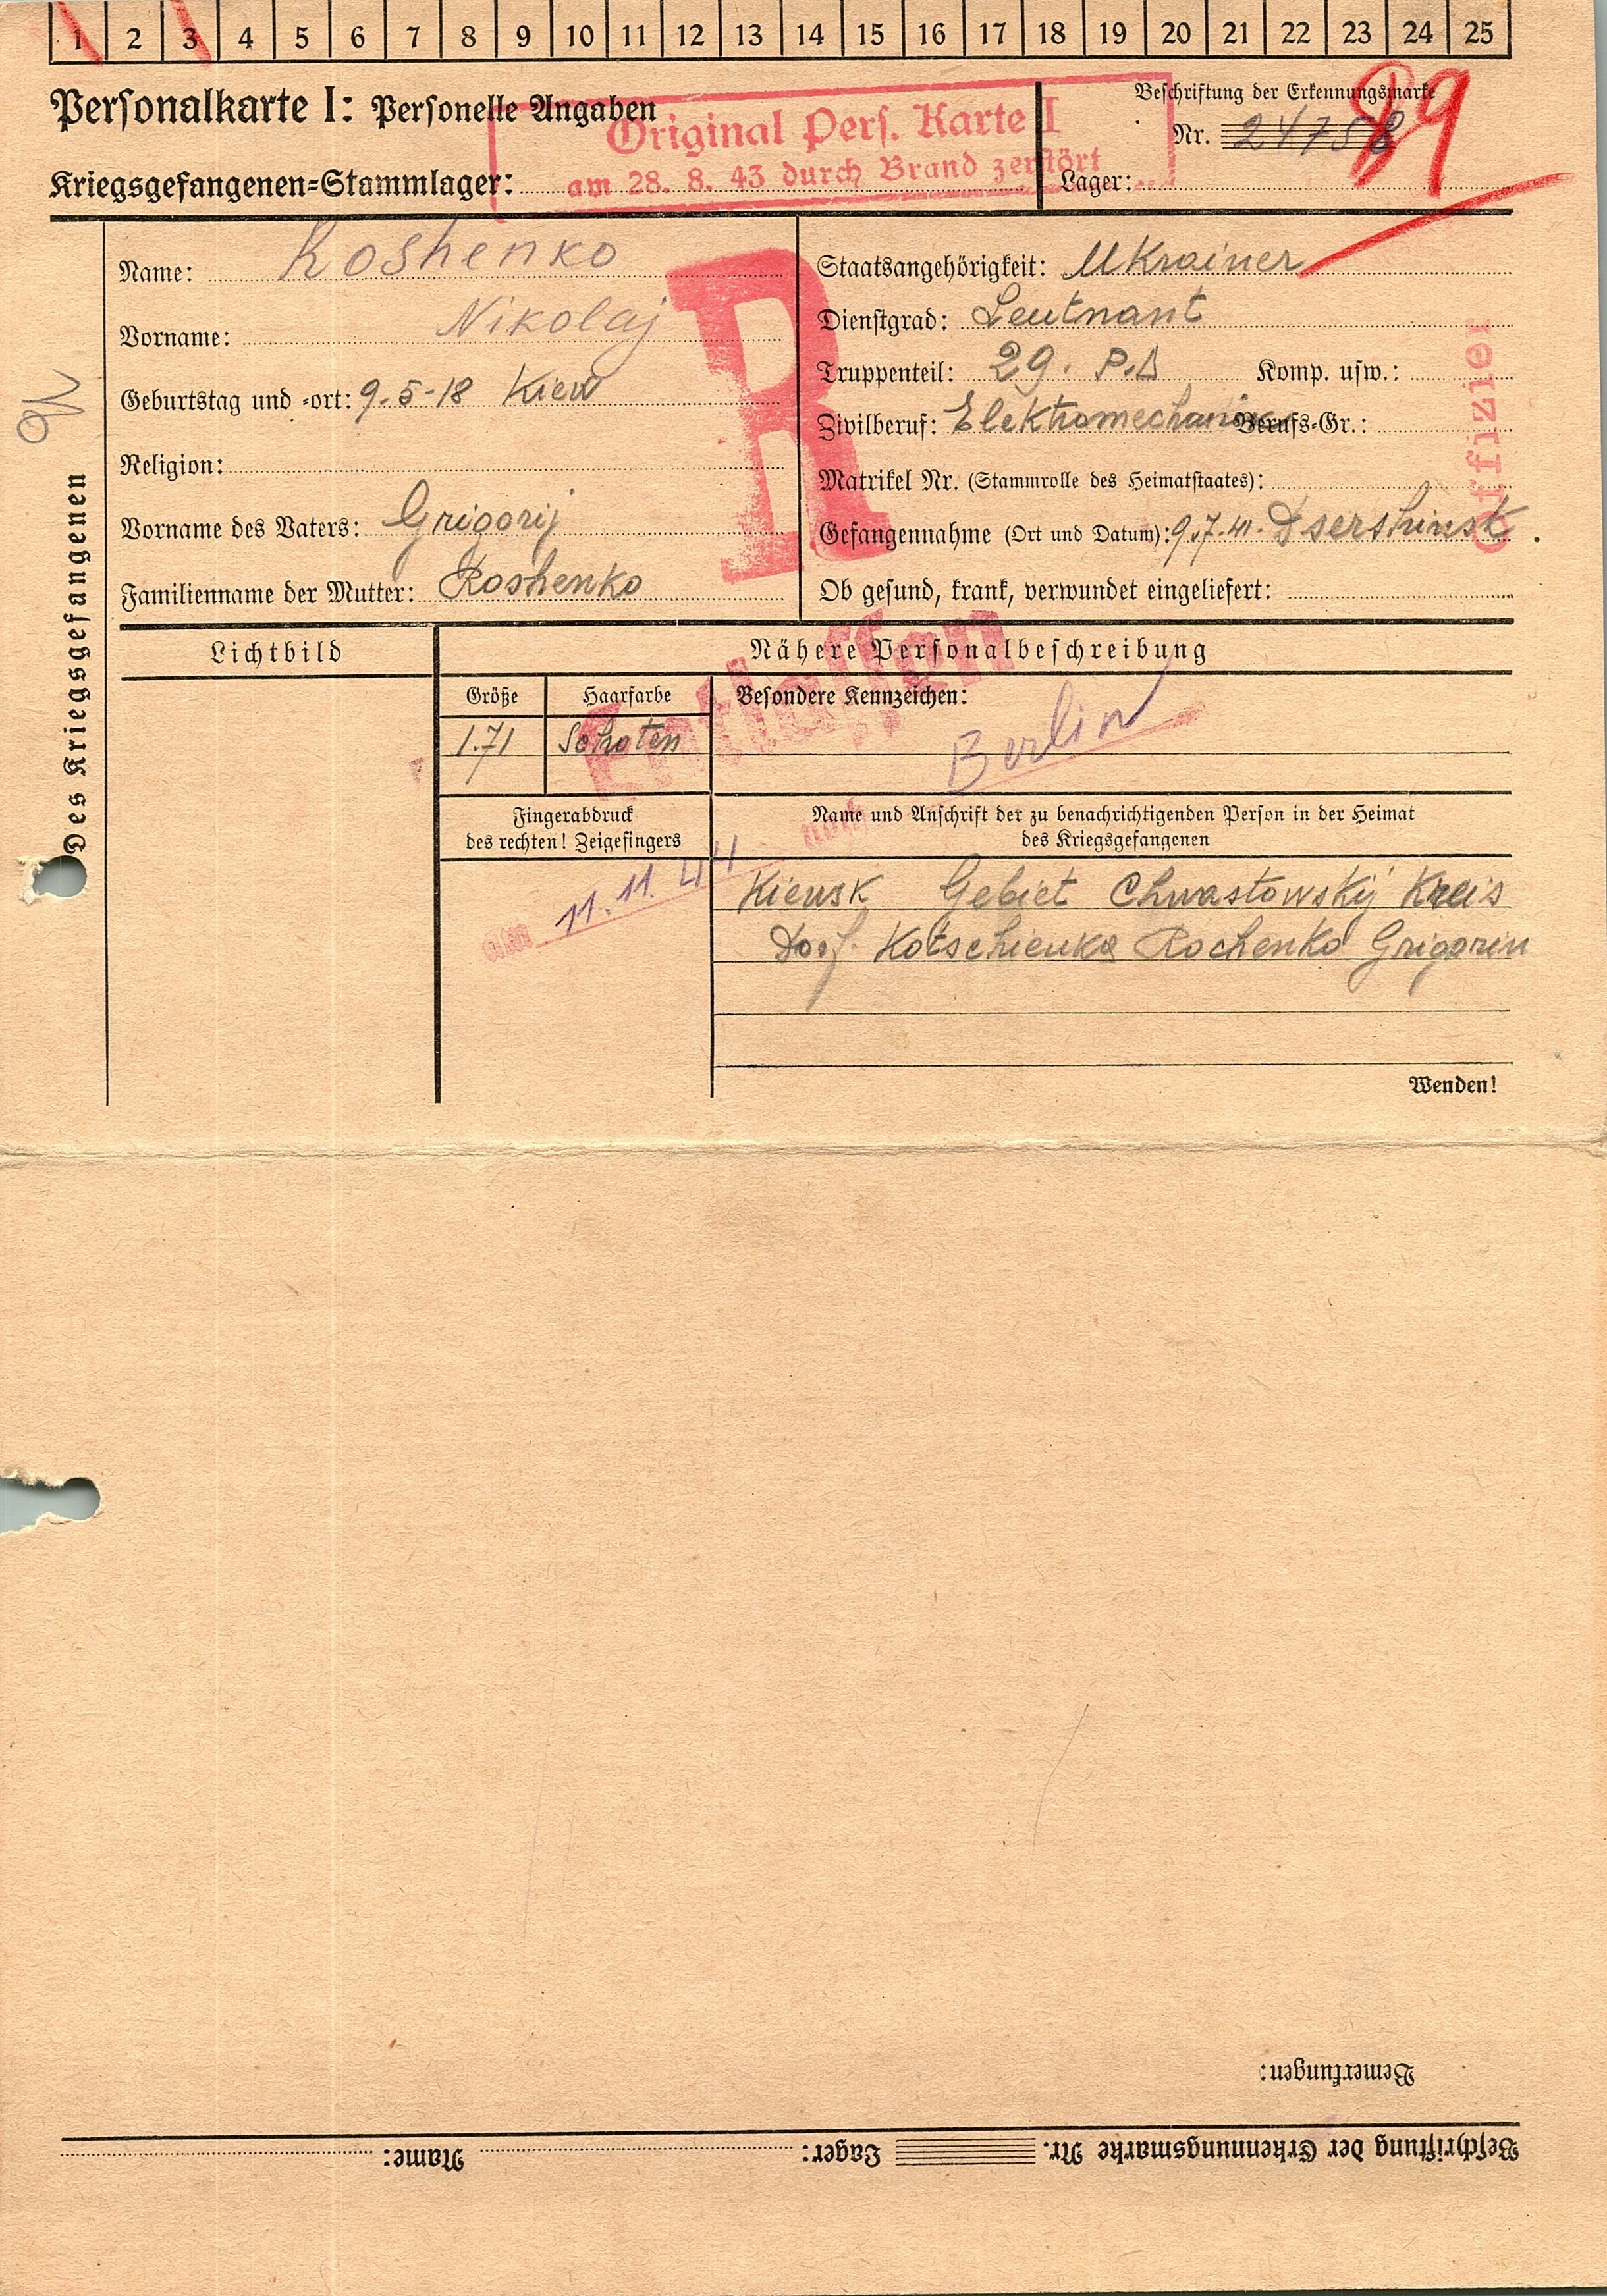 1 2 3 4 5 6 7 8 9 10 11 12 13 14 15 16 17 18 19 20 21 22 23 24 25
Personalkarte I: Personelle Angaben
Original Pers. Karte I
am 28. 8. 43 durch Brand zerstört
Beschriftung der Erkennungsmarke
Nr. 24758
89
Kriegsgefangenen-Stammlager:
Lager:
Des Kriegsgefangenen
Name: Roshenko
Vorname: Nikolaj
Geburtstag und -ort: 9.5-18 Kiew
Religion:
Vorname des Vaters: Grigorij
Familienname der Mutter: Roshenko
R
Staatsangehörigkeit: Ukrainer
Dienstgrad: Leutnant
Truppenteil: 29. P.D Komp. usw.:
Zivilberuf: Elektromechaniker Berufs-Gr.:
Matrikel Nr. (Stammrolle des Heimatstaates):
Gefangennahme (Ort und Datum): 9.7.41. Dsershinsk
Ob gesund, krank, verwundet eingeliefert:
Offizier
Lichtbild
Nähere Personalbeschreibung
Größe Haarfarbe Besondere Kennzeichen:
1.71 Schaten
Entlassen
nach Berlin
am 11.11.44
Fingerabdruck
des rechten! Zeigefingers
Name und Anschrift der zu benachrichtigenden Person in der Heimat
des Kriegsgefangenen
Kiewsk Gebiet Chwastowskij Kreis
Dorf. Kotschienka Rochenko Grigorin
Wenden!
Bemerkungen:
Beschriftung der Erkennungsmarke Nr. Lager: Name: